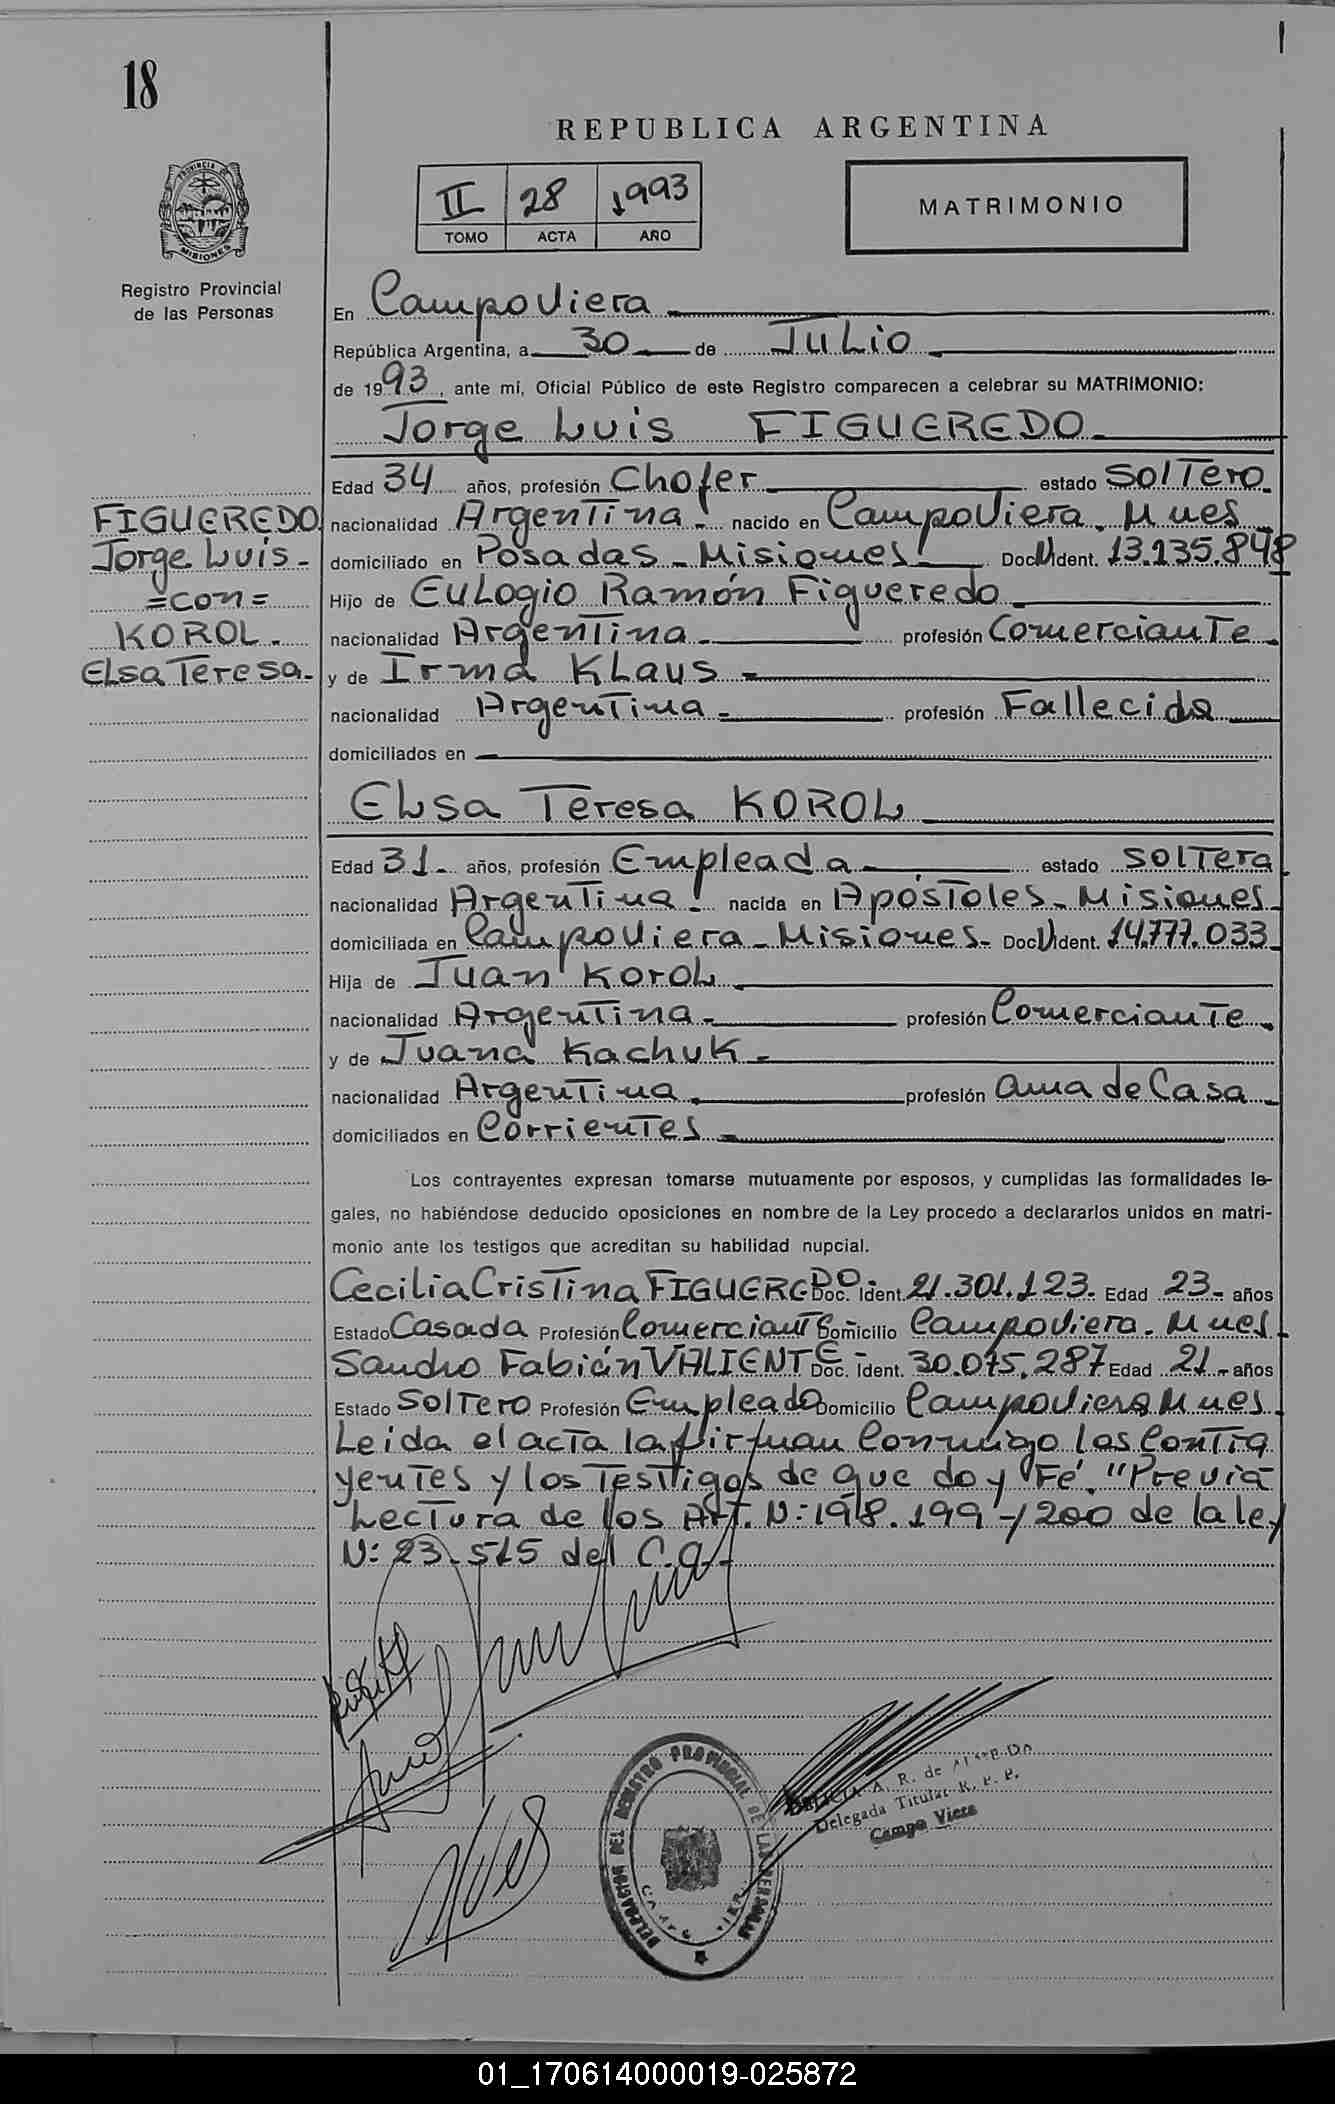 18
REPUBLICA ARGENTINA
II 28 1993
TOMO ACTA AÑO
MATRIMONIO
PROVINCIA DE
MISIONES
Registro Provincial
de las Personas
En CampoViera
República Argentina, a 30 de Julio
de 1993, ante mí, Oficial Público de este Registro comparecen a celebrar su MATRIMONIO:
Jorge Luis FIGUEREDO
Edad 34 años, profesión Chofer estado Soltero
nacionalidad Argentina nacido en CampoViera. Mnes
domiciliado en Posadas - Misiones Doc. Ident. 13.135.898
Hijo de Eulogio Ramón Figueredo
nacionalidad Argentina profesión Comerciante
y de Irma Klaus
nacionalidad Argentina profesión Fallecida
domiciliados en
FIGUEREDO
Jorge Luis -
= con =
KOROL -
Elsa Teresa -
Elsa Teresa KOROL
Edad 31 años, profesión Empleada estado Soltera
nacionalidad Argentina nacida en Apóstoles - Misiones
domiciliada en CampoViera - Misiones - Doc. Ident. 14.777.033
Hija de Juan Korol
nacionalidad Argentina profesión Comerciante
y de Juana Kachuk
nacionalidad Argentina profesión ama de Casa
domiciliados en Corrientes
Los contrayentes expresan tomarse mutuamente por esposos, y cumplidas las formalidades le-
gales, no habiéndose deducido oposiciones en nombre de la Ley procedo a declararlos unidos en matri-
monio ante los testigos que acreditan su habilidad nupcial.
Cecilia Cristina FIGUEREDO Doc. Ident. 21.301.123 Edad 23 años
Estado Casada Profesión Comerciante Domicilio CampoViera. Mnes
Sandro Fabián VALIENTE Doc. Ident. 30.075.287 Edad 21 años
Estado Soltero Profesión Empleado Domicilio CampoViera Mnes
Leida el acta la firman Conmigo los Contra
yentes y los Testigos de que doy Fé. "Previa
Lectura de los Art. N: 198. 199 - / 200 de la ley
N: 23.515 del C.C.
DELEGACION DEL REGISTRO PROVINCIAL DE LAS PERSONAS
CAMPO VIERA
A. R. de
Delegada Titular R. P. P.
Campo Viera
01_170614000019-025872